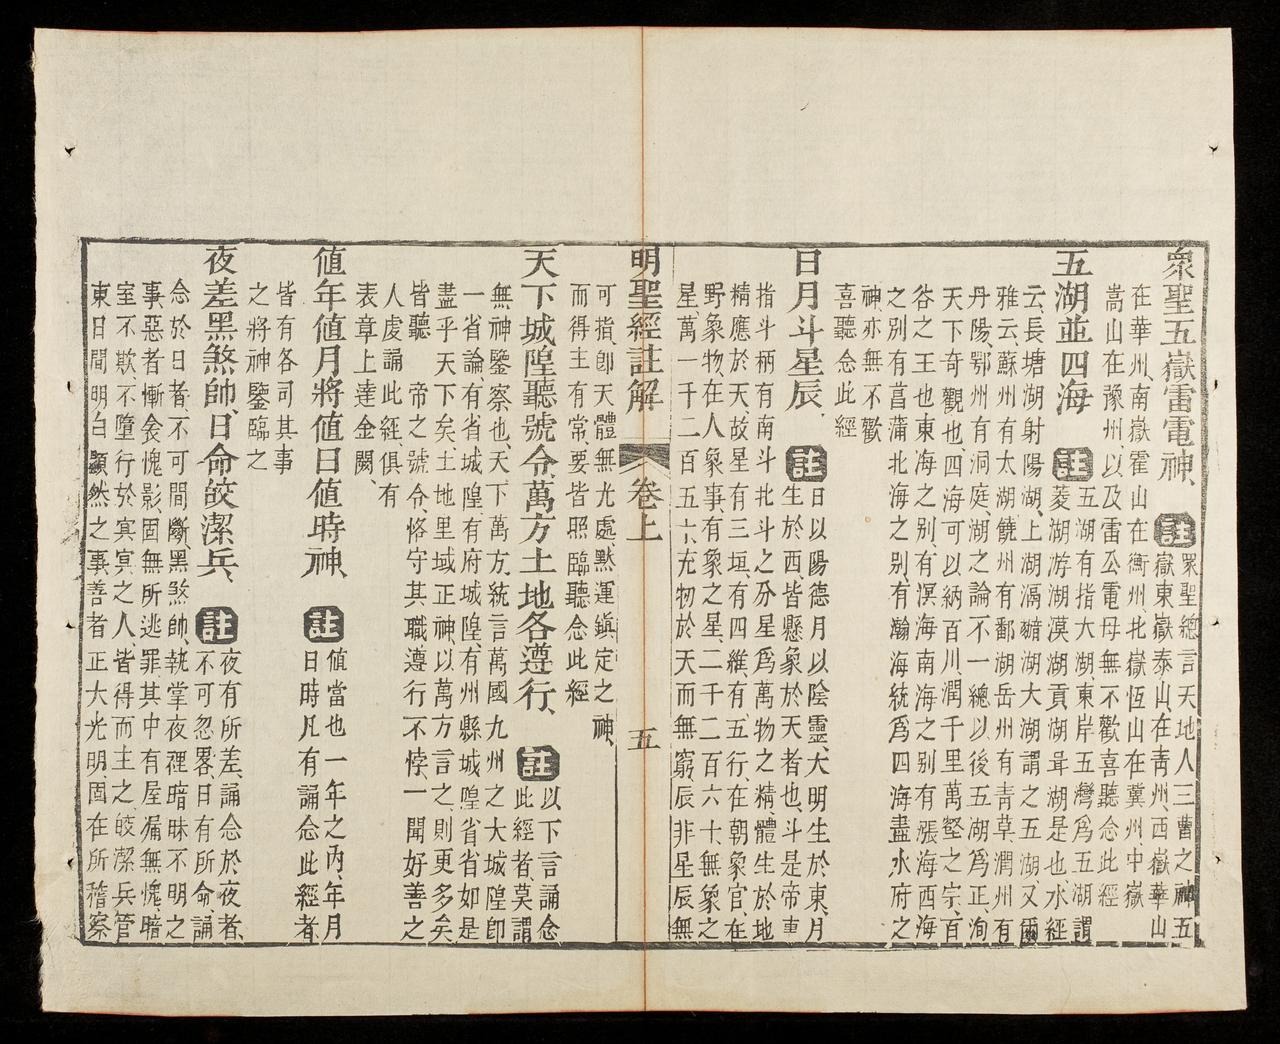 眾聖五嶽雷電神、
註眾聖總言天地人三曹之神五
嶽東嶽泰山、在青州、西嶽華山
在華州、南嶽霍山在衡州、北嶽恆山在冀州中嶽
嵩山在豫州、以及雷公電母無不歡喜聽念此經
五湖並四海
註五湖有指大湖、東岸五灣為五湖、謂
菱湖游湖漠湖貢湖胥湖是也、水經
云、長塘湖射陽湖、上湖滆湖大湖謂之五湖、又爾
雅云、蘇州有太湖饒州有鄱湖岳州有青草、潤州有
丹陽、鄂州有洞庭、湖之論不一總以後五湖為正、洵
天下奇觀也、四海可以納百川、潤千里萬壑之宗、百
谷之王也東海之別、有溟海南海之別有漲海西海
之別有菖蒲北海之別、有瀚海統為四海盡水府之
神、亦無不歡
喜聽念此經
日月斗星辰、
註日以陽德月以陰靈、大明生於東、月
生於西、皆懸象於天者也、斗是帝車
指斗柄有南斗北斗之分星為萬物之精體生於地
精應於天、故星有三垣、有四維、有五行、在朝象官、在
野象物、在人象事、有象之星、二千二百六十、無象之
星、萬一千二百五六、充物於天而無窮、辰非星辰無
明聖經註解 卷上 五
可指、卽天體無光處、默運鎮定之神、
而得主有常、要皆照臨聽念此經
天下城隍聽號令萬方土地各遵行、
註以下言誦念
此經者莫謂
無神鑒察也、天下萬方、統言萬國九州之大城隍卽
一省論、有省城隍、有府城隍、有州縣城隍省省如是
盡乎天下矣、土地里域正神、以萬方言之、則更多矣、
皆聽 帝之號令、恪守其職、遵行不悖、一聞好善之
人虔誦此經、俱有
表章上達金闕、
值年值月將值日值時神、
註值當也一年之內、年月
日時凡有誦念此經者、
皆有各司其事
之將神鑒臨之
夜差黑煞帥、日命皎潔兵、
註夜有所差、誦念於夜者、
不可忽畧、日有所命、誦
念於日者、不可間斷、黑煞帥、執掌夜裡暗昧不明之
事惡者慚衾愧影、固無所逃罪、其中有屋漏無愧、暗
室不欺不墮行於冥冥之人、皆得而主之、皎潔兵管
東日間明白顯然之事、善者正大光明、固在所稽察